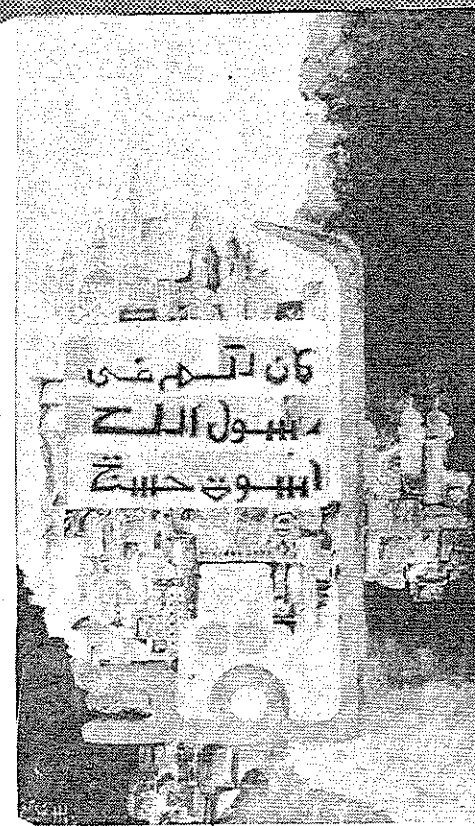 كان لكم في
رسول الله
أسوة حسنة